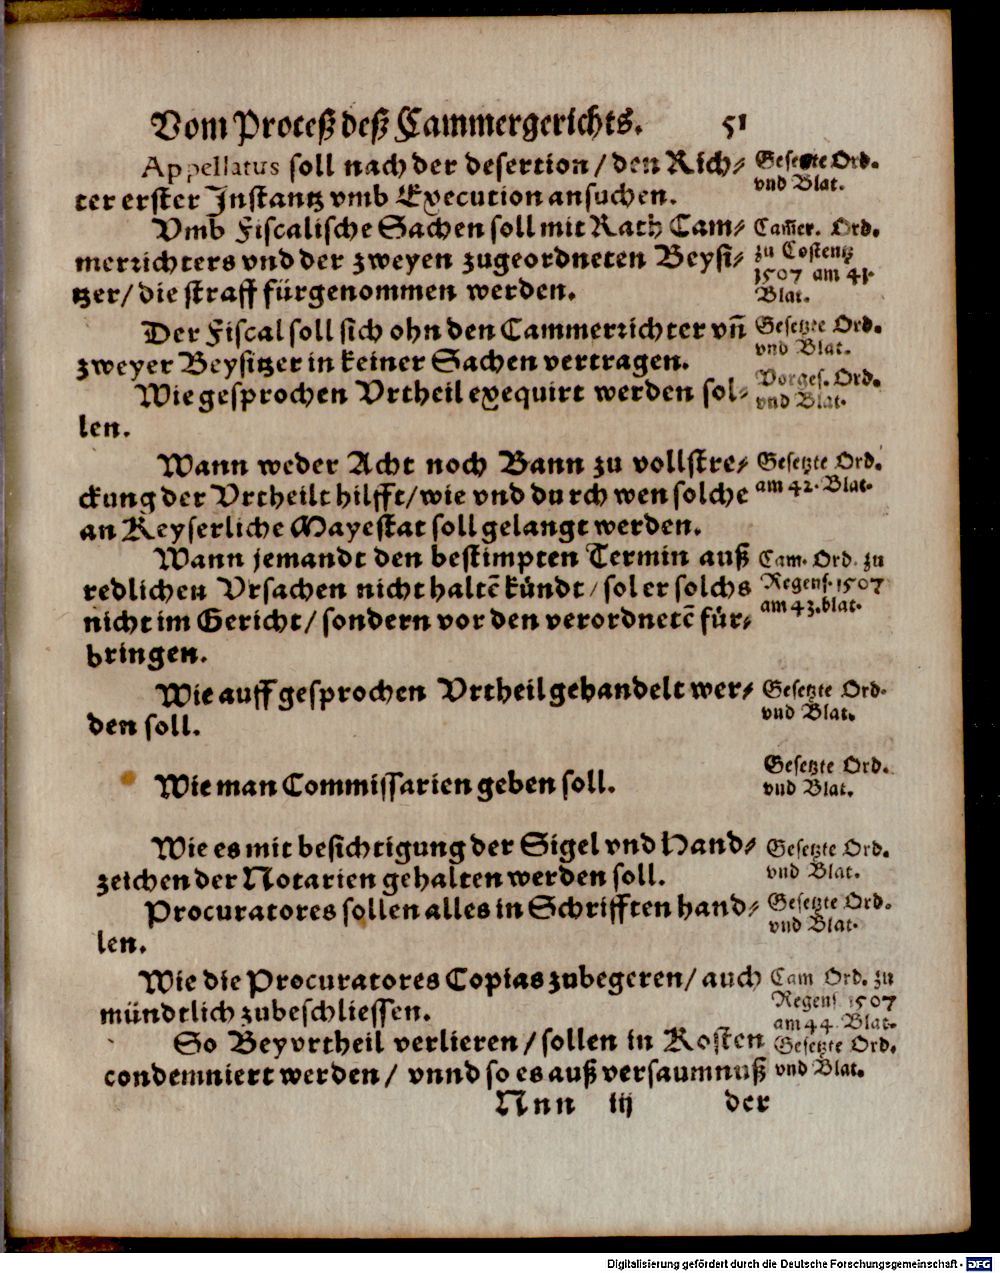 Vom Proceß deß Cammergerichts. 51
Appellatus soll nach der desertion / den Rich⸗
ter erster Instantz vmb Execution ansuchen.
Gesetzte Ord.
vnd Blat.
Vmb Fiscalische Sachen soll mit Rath Cam⸗
merrichters vnd der zweyen zugeordneten Beysi⸗
tzer / die straff fürgenommen werden.
Cam̃er. Ord.
zu Costentz
1507 am 41.
Blat.
Der Fiscal soll sich ohn den Cammerrichter vñ
zweyer Beysitzer in keiner Sachen vertragen.
Gesetzte Ord.
vnd Blat.
Wie gesprochen Vrtheil exequirt werden sol⸗
len.
Vorges. Ord.
vnd Blat.
Wann weder Acht noch Bann zu vollstre⸗
ckung der Vrtheilt hilfft / wie vnd durch wen solche
an Keyserliche Mayestat soll gelangt werden.
Gesetzte Ord.
am 42. Blat.
Wann jemandt den bestimpten Termin auß
redlichen Vrsachen nicht haltẽ kündt / sol er solchs
nicht im Gericht / sondern vor den verordnetẽ für⸗
bringen.
Cam. Ord. zu
Regens. 1507
am 43. blat.
Wie auff gesprochen Vrtheil gehandelt wer⸗
den soll.
Gesetzte Ord.
vnd Blat.
Wie man Commissarien geben soll.
Gesetzte Ord.
vnd Blat.
Wie es mit besichtigung der Sigel vnd Hand⸗
zeichen der Notarien gehalten werden soll.
Gesetzte Ord.
vnd Blat.
Procuratores sollen alles in Schrifften hand⸗
len.
Gesetzte Ord.
vnd Blat.
Wie die Procuratores Copias zubegeren / auch
mündtlich zubeschliessen.
Cam Ord. zu
Regens 1507
am 44. Blat.
So Beyvrtheil verlieren / sollen in Kosten
condemniert werden / vnnd so es auß versaumnuß
Gesetzte Ord.
vnd Blat.
Nnn iij der
Digitalisierung gefördert durch die Deutsche Forschungsgemeinschaft - DFG